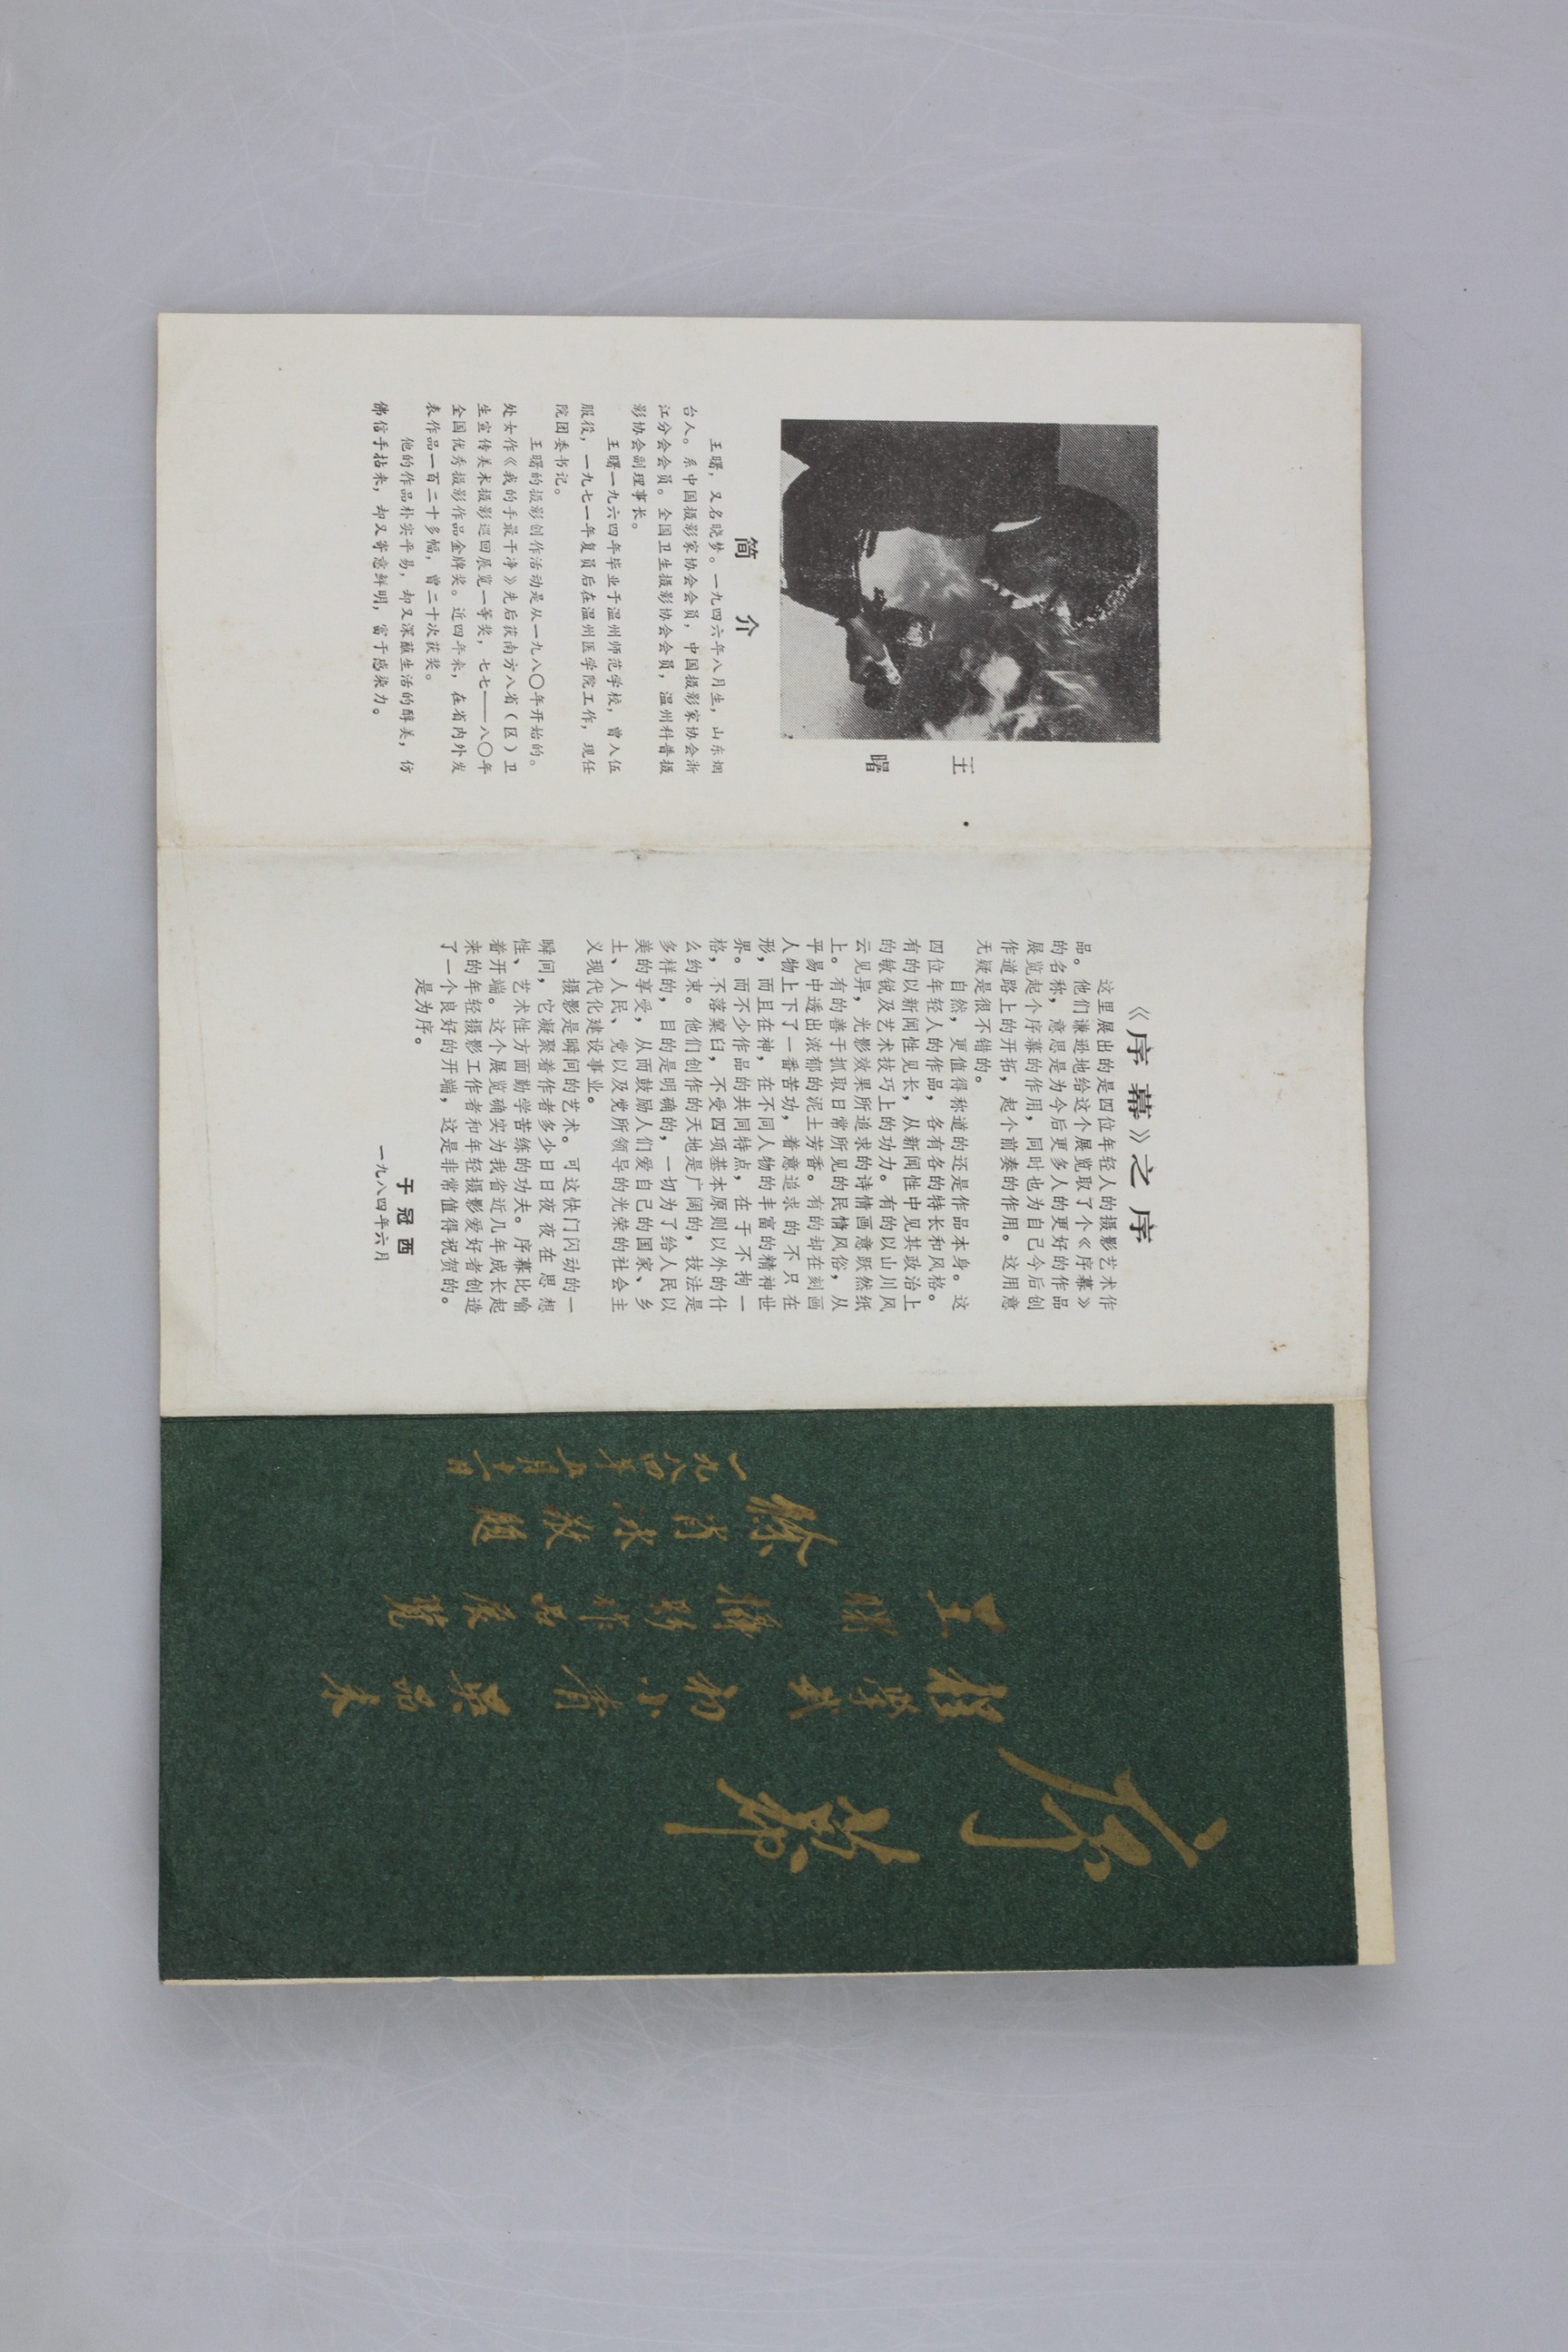 王曙
简介
王曙，又名晓梦。一九四六年八月生，山东烟
台人。系中国摄影家协会会员，中国摄影家协会浙
江分会会员。全国卫生摄影协会会员，温州科普摄
影协会副理事长。
王曙一九六四年毕业于温州师范学校，曾入伍
服役，一九七一年复员后在温州医学院工作，现任
院团委书记。
王曙的摄影创作活动是从一九八〇年开始的。
处女作《我的手最干净》先后获南方八省（区）卫
生宣传美术摄影巡回展览一等奖，七七——八〇年
全国优秀摄影作品金牌奖。近四年来，在省内外发
表作品一百二十多幅，曾二十次获奖。
他的作品朴实平易，却又深蕴生活的醇美，仿
佛信手拈来，却又寄意鲜明，富于感染力。
《序幕》之序
这里展出的是四位年轻人的摄影艺术作
品。他们谦逊地给这个展览取了个《序幕》
的名称，意思是为今后更多人的更好的作品
展览起个序幕的作用，同时也为自己今后创
作道路上的开拓，起个前奏的作用。这用意
无疑是很不错的。
自然，更值得称道的还是作品本身。这
四位年轻人的作品，各有各的特长和风格。
有的以新闻性见长，从新闻性中见其政治上
的敏锐及艺术技巧上的功力。有的以山川风
云见异，光影效果所追求的诗情画意跃然纸
上。有的善于抓取日常所见的民情风俗，从
平易中透出浓郁的泥土芳香。有的却在刻画
人物上下了一番苦功，着意追求的不只在
形，而且在神，在不同人物的丰富的精神世
界。而不少作品的共同特点，在于不拘一
格，不落窠臼，不受四项基本原则以外的什
么约束。他们创作的天地是广阔的，技法是
多样的，目的是明确的，一切为了给人民以
美的享受，从而鼓励人们爱自己的国家、乡
土、人民、党以及党所领导的光荣的社会主
义现代化建设事业。
摄影是瞬间的艺术。可这快门闪动的一
瞬间，它凝聚着作者多少日日夜夜在思想
性、艺术性方面勤学苦练的功夫。序幕比喻
着开端。这个展览确实为我省近几年成长起
来的年轻摄影工作者和年轻摄影爱好者创造
了一个良好的开端，这是非常值得祝贺的。
是为序。
于冠西
一九八四年六月
序幕
王曙 摄影作品展览
徐肖冰敬题
一九八四年五月十一日